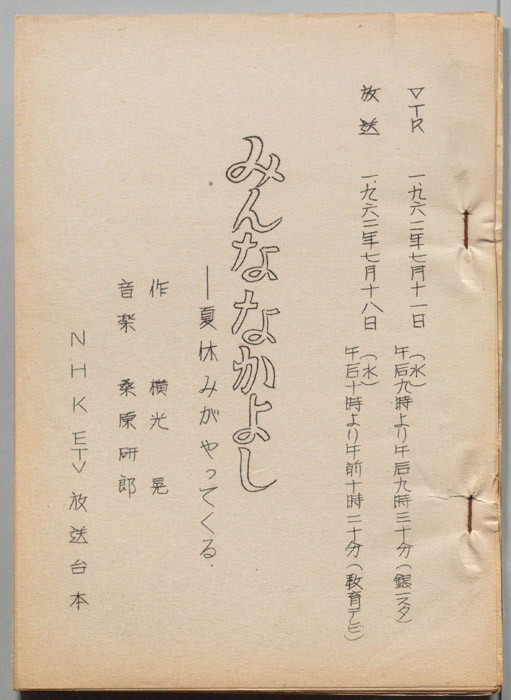 VTR 一九六二年七月十一日(水)午后九時より午后九時三十分(銀スタ)
放送 一九六二年七月十八日(水)午后十時より午前十時二十分(教育テビ)
みんななかよし
―夏休みがやってくる.
作 横光 晃
音楽 桑原研郎
NHK ETV 放送台本